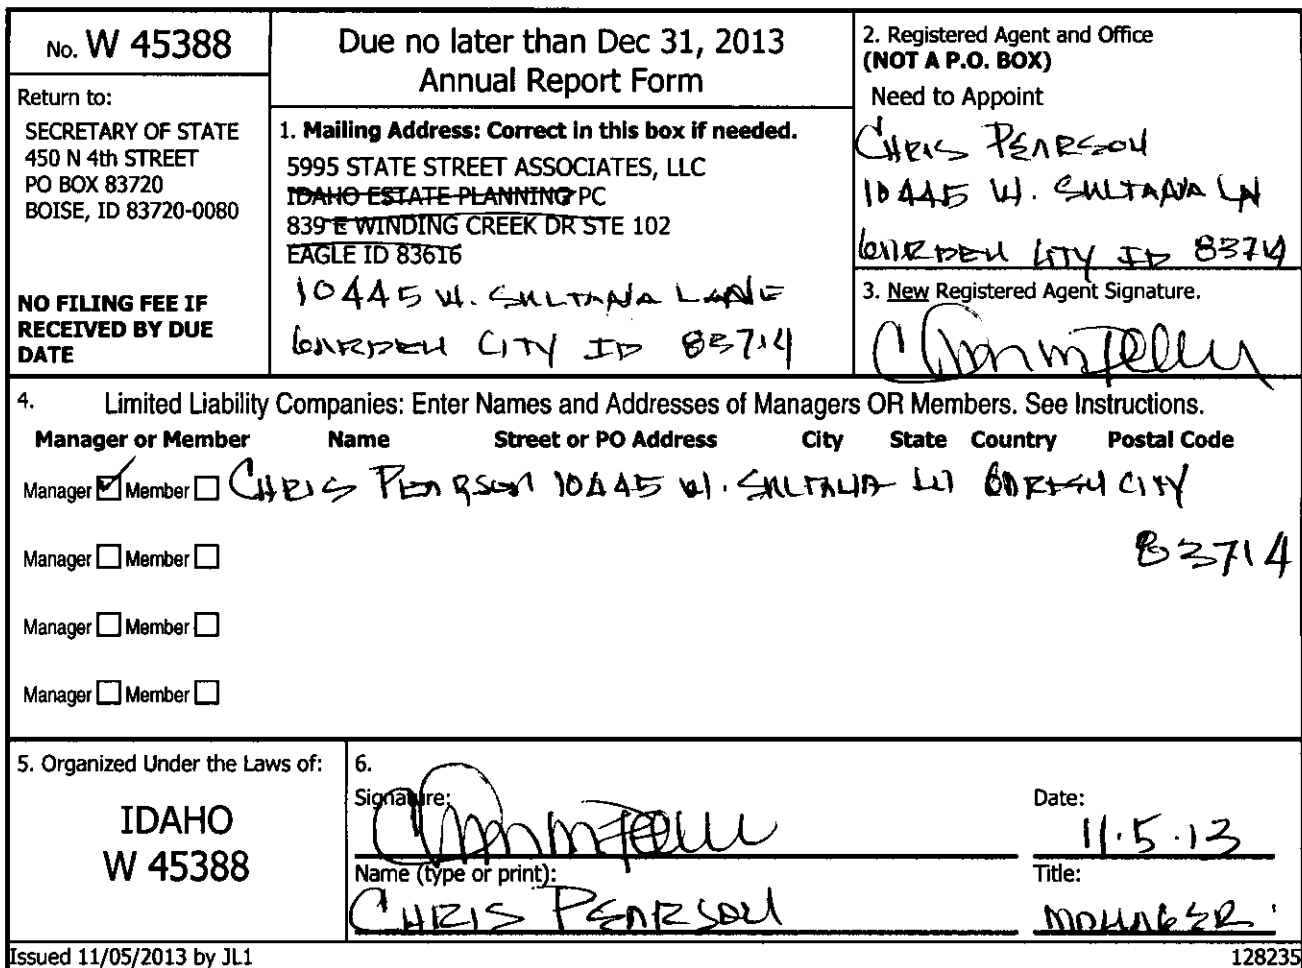 No. W 45388
Return to:
SECRETARY OF STATE
450 N 4th STREET
PO BOX 83720
BOISE, ID 83720-0080
NO FILING FEE IF
RECEIVED BY DUE
DATE
Due no later than Dec 31, 2013
Annual Report Form
1. Mailing Address: Correct in this box if needed.
5995 STATE STREET ASSOCIATES, LLC
IDAHO ESTATE PLANNING PC
839 E WINDING CREEK DR STE 102
EAGLE ID 83616
10445 W. SULTANA LANE
GARDEN CITY ID 83714
2. Registered Agent and Office
(NOT A P.O. BOX)
Need to Appoint
CHRIS PEARSON
10445 W. SULTANA LN
GARDEN CITY ID 83714
3. New Registered Agent Signature.
4. Limited Liability Companies: Enter Names and Addresses of Managers OR Members. See Instructions.
Manager or Member Name Street or PO Address City State Country Postal Code
Manager Member CHRIS PEARSON 10445 W. SULTANA LN GARDEN CITY
83714
Manager Member
Manager Member
Manager Member
5. Organized Under the Laws of:
IDAHO
W 45388
6.
Signature:
Date:
11.5.13
Name (type or print):
CHRIS PEARSON
Title:
MANAGER
Issued 11/05/2013 by JL1
128235